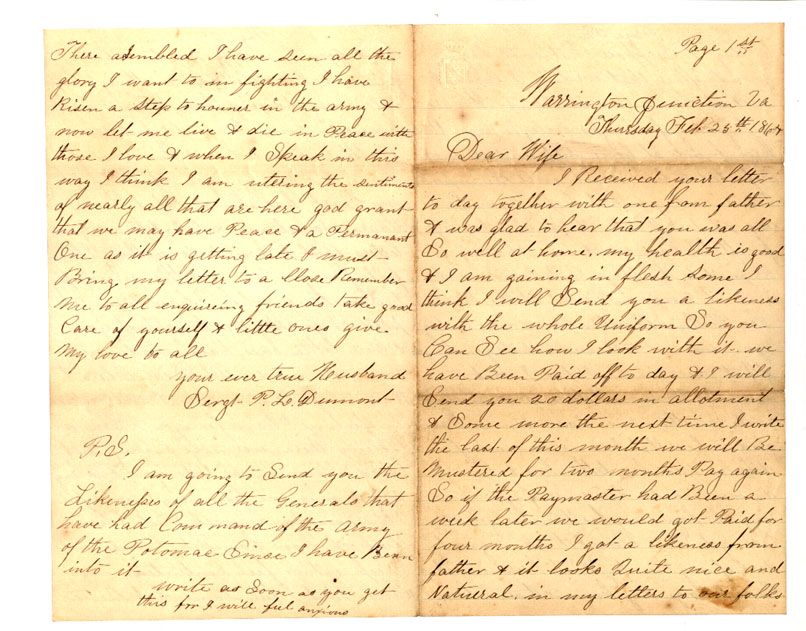 Page 1st
Warrington Junction Va
Thursday Feb. 25th 1864
Dear Wife
I Received your letter
to day together with one from father
& was glad to hear that you was all
So well at home. my health is good
& I am gaining in flesh Some I
think I will Send you a likeness
with the whole Uniform So you
Can See how I look with it. we
have Been Paid off to day & I will
Send you 20 dollars in allotment
& Some more the next time I write
the last of this month we will Be
Mustered for two months Pay again
So if the Paymaster had Been a
week later we would got Paid for
four months I got a likeness from
father & it looks Quite nice and
Natueral. in my letters to our folks
There asembled I have seen all the
glory I want to in fighting I have
Risen a step to houner in the army &
now let me live & die in Peace with
those I love & when I Speak in this
way I think I am utering the sentiments
of nearly all that are here god grant
that we may have Peace & a Permanant
One as it is getting late I must
Bring my letter to a Close Remember
me to all enquireing friends take good
Care of yourself & little ones give
My love to all
your ever true Husband
Sergt P. L. Dumont
P.S.
I am going to Send you the
Likenesses of all the Generals that
have had Command of the Army
of the Potomac Since I have Been
into it
write as Soon as you get
this for I will feel anxious